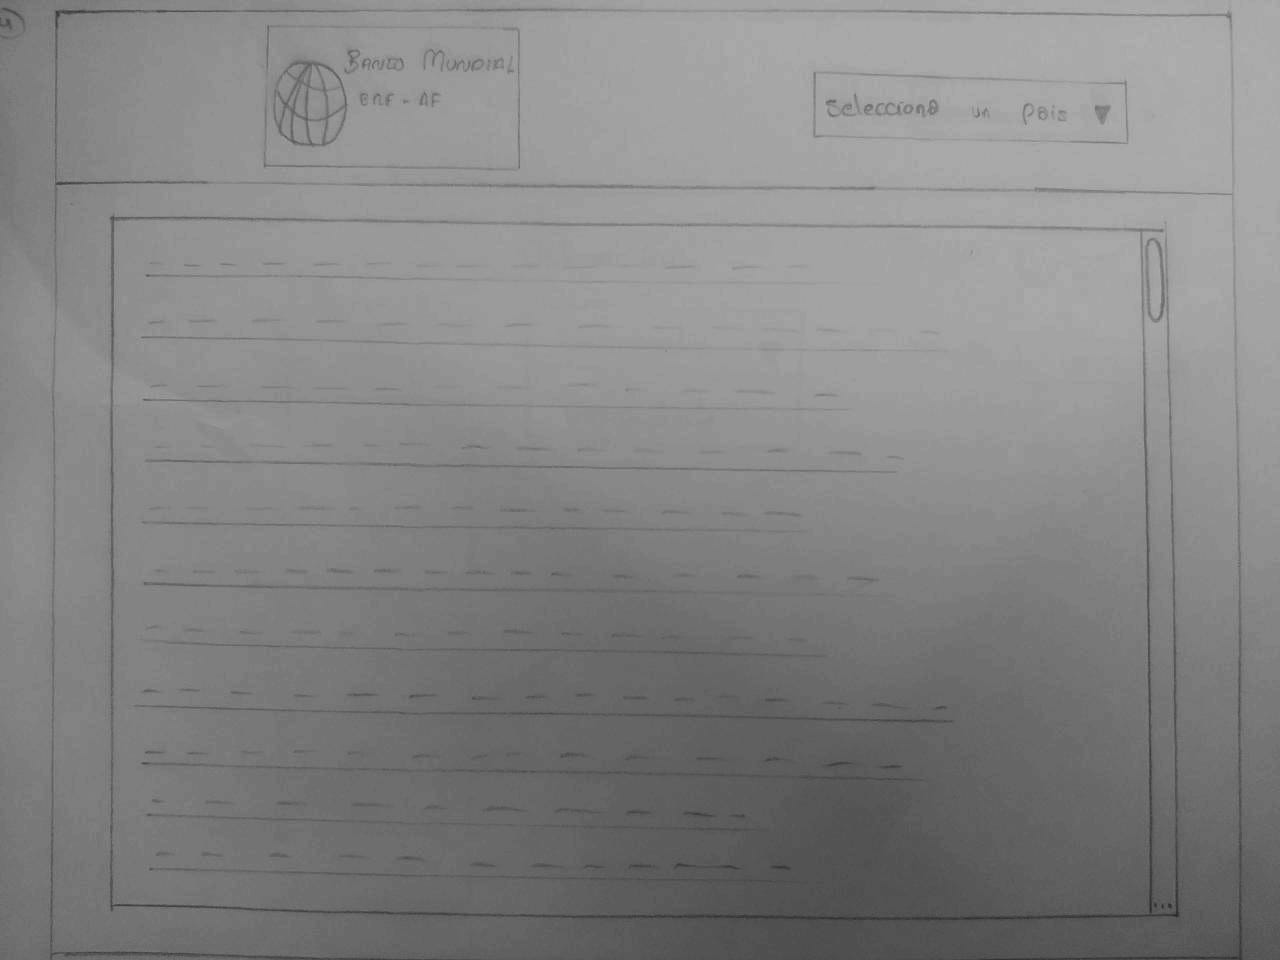 4
BANCO MUNDIAL
BIRF - AIF
Selecciona un pais ▼
...